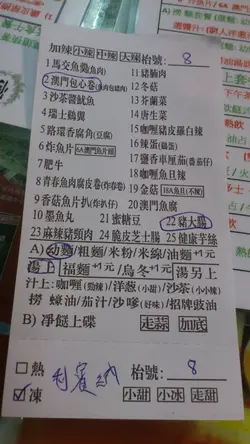 加辣 小辣 中辣 大辣 枱號: 8
1 馬交魚羹(魚肉) 11 豬腩肉
2 澳門包心卷(魚肉包豬肉) 12 冬菇
3 沙茶醬魷魚 13 茶蘭菜
4 瑞士雞翼 14 唐生菜
5 路環香腐角(豆腐) 15 咖喱豬皮蘿白辣
6 炸魚片 6A澳門魚片頭 16 辣蛋(雞蛋)
7 肥牛 17 鹽香車厘茄(番茄仔)
8 青春魚肉腐皮卷(炸春卷) 18 咖喱魚旦辣
9 香菇魚片扒(炸釟仔) 19 金菇 18A魚旦(不辣)
10 墨魚丸 20 澳門魚腐
21 蜜糖豆 22 豬大腸
23 麻辣豬頸肉 24 脆皮芝士腸 25 健康芋絲
A) 幼麵/粗麵/米粉/米線/油麵+1元
湯上 福麵+1元/烏冬+1元 湯另上
汁上: 咖喱(勁辣)/洋葱(小辣)/沙茶(小小辣)
撈 蠔油/茄汁/沙嗲(好味)/招牌豉油
B) 凈餸上碟 走蒜 加底
熱 利賓納 枱號: 8
凍 小甜 小冰 走甜